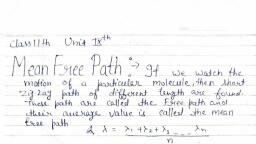 Class 11th Unit IXth
Mean Free Path :→ If we watch the
motion of a particular molecule, then short
zig zag path of different length are found.
These path are called the Free path and
their average value is called the mean
free path
& λ = λ₁ + λ₂ + λ₃ ..... λn
n